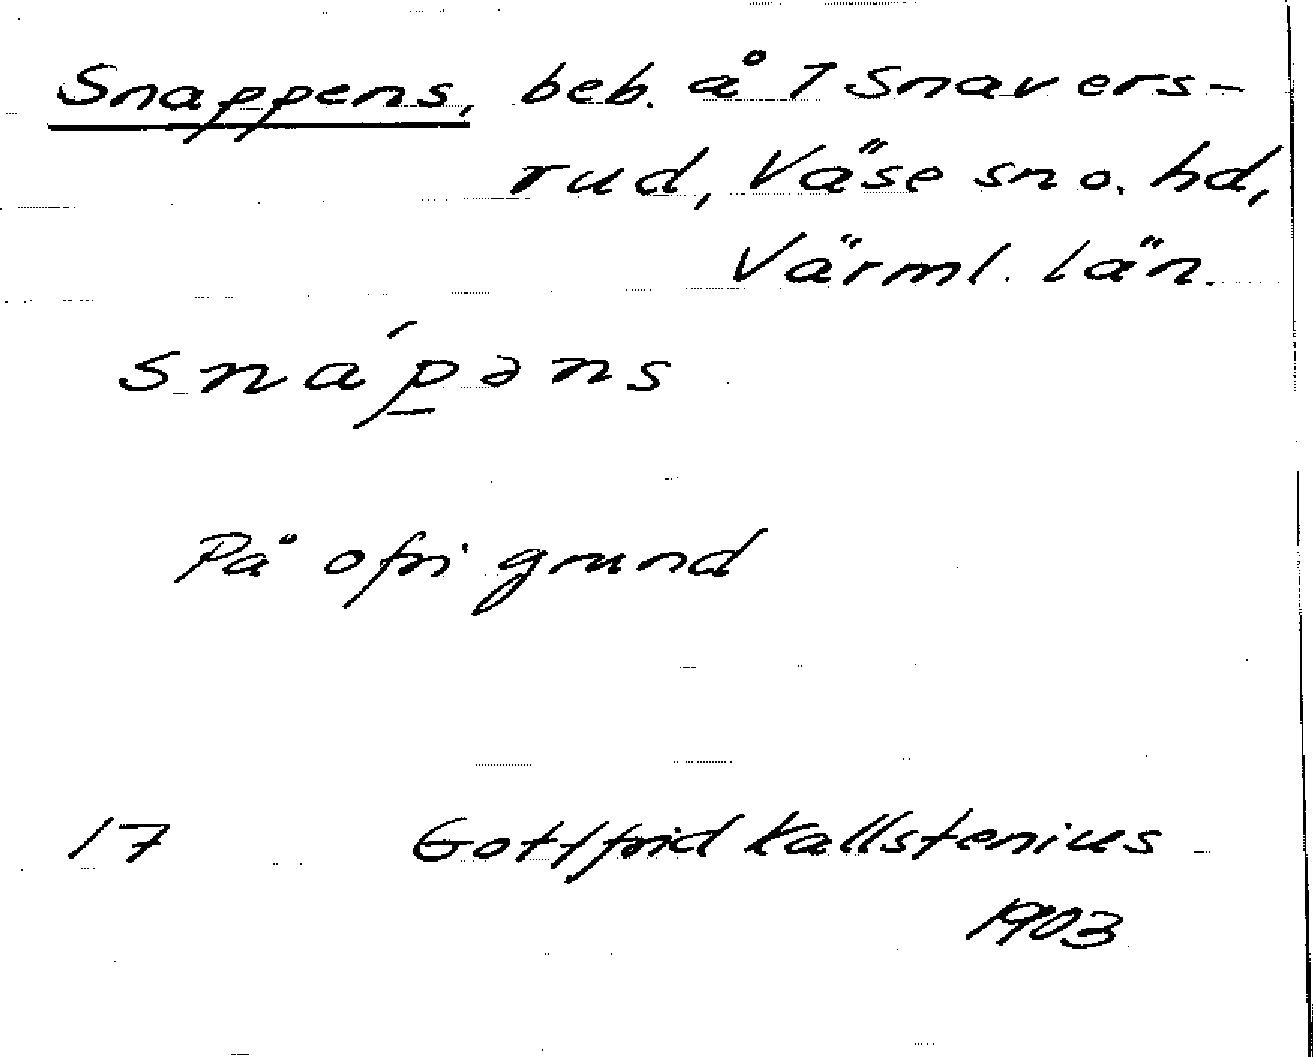 Snappens, beb. å 1 Snavers-
rud, Väse sn o. hd,
Värml. län.
snáp̲əns
På ofri grund
17 Gottfrid Kallstenius
1903